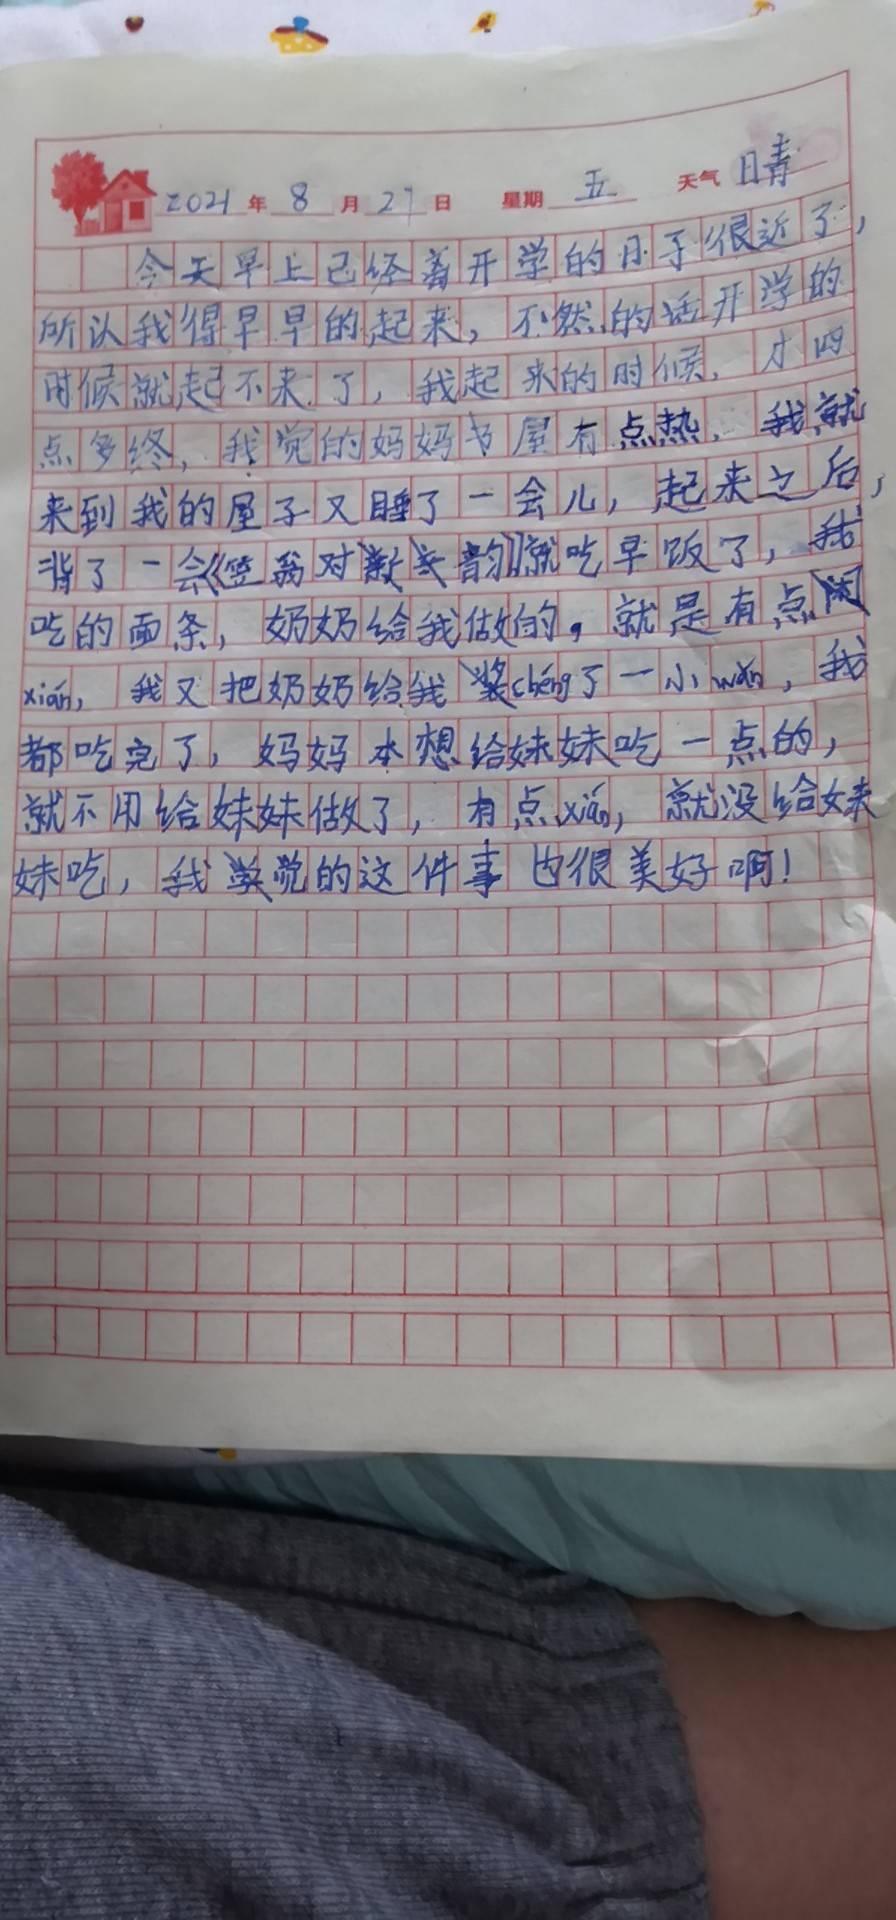 2021年8月27日 星期五 天气晴
今天早上已经着开学的日子很近了,
所认我得早早的起来,不然的话开学的
时候就起不来了,我起来的时候,才四
点多终,我觉的妈妈书屋有点热,我就
来到我的屋子又睡了一会儿,起来之后,
背了一会《笠翁对韵》就吃早饭了,我
吃的面条,奶奶给我做的,就是有点
xián,我又把奶奶给我chéng了一小wǎn,我
都吃完了,妈妈本想给妹妹吃一点的,
就不用给妹妹做了,有点xián,就没给妹
妹吃,我觉的这件事也很美好啊!